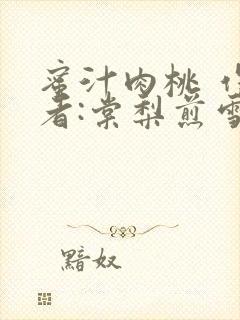 蜜汁肉桃 作
者:棠梨煎雪
黯奴